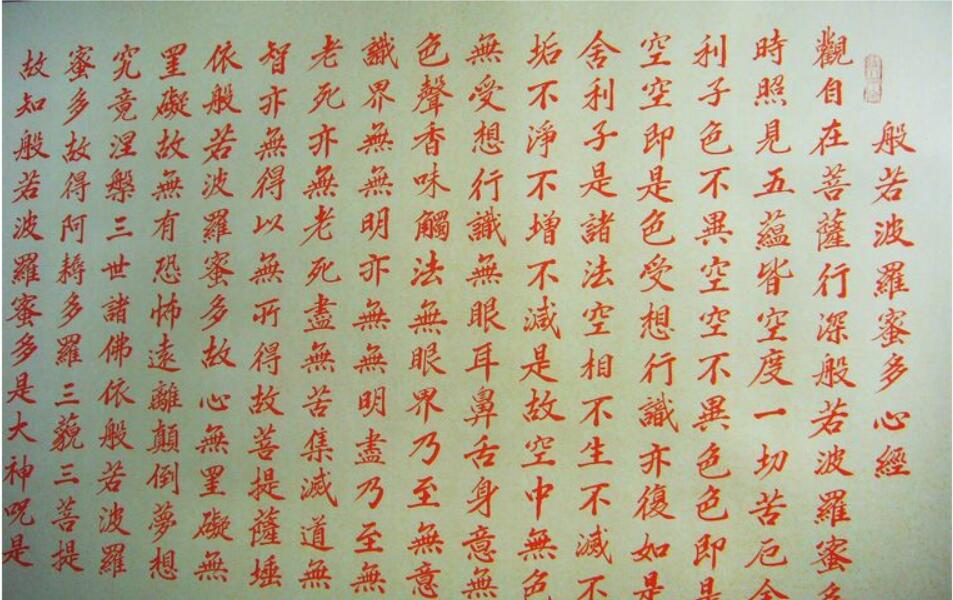 般若波羅蜜多心經
觀自在菩薩行深般若波羅蜜多
時照見五蘊皆空度一切苦厄舍
利子色不異空空不異色色即是
空空即是色受想行識亦復如是
舍利子是諸法空相不生不滅不
垢不淨不增不減是故空中無色
無受想行識無眼耳鼻舌身意無
色聲香味觸法無眼界乃至無意
識界無無明亦無無明盡乃至無
老死亦無老死盡無苦集滅道無
智亦無得以無所得故菩提薩埵
依般若波羅蜜多故心無罣礙無
罣礙故無有恐怖遠離顛倒夢想
究竟涅槃三世諸佛依般若波羅
蜜多故得阿耨多羅三藐三菩提
故知般若波羅蜜多是大神呪是